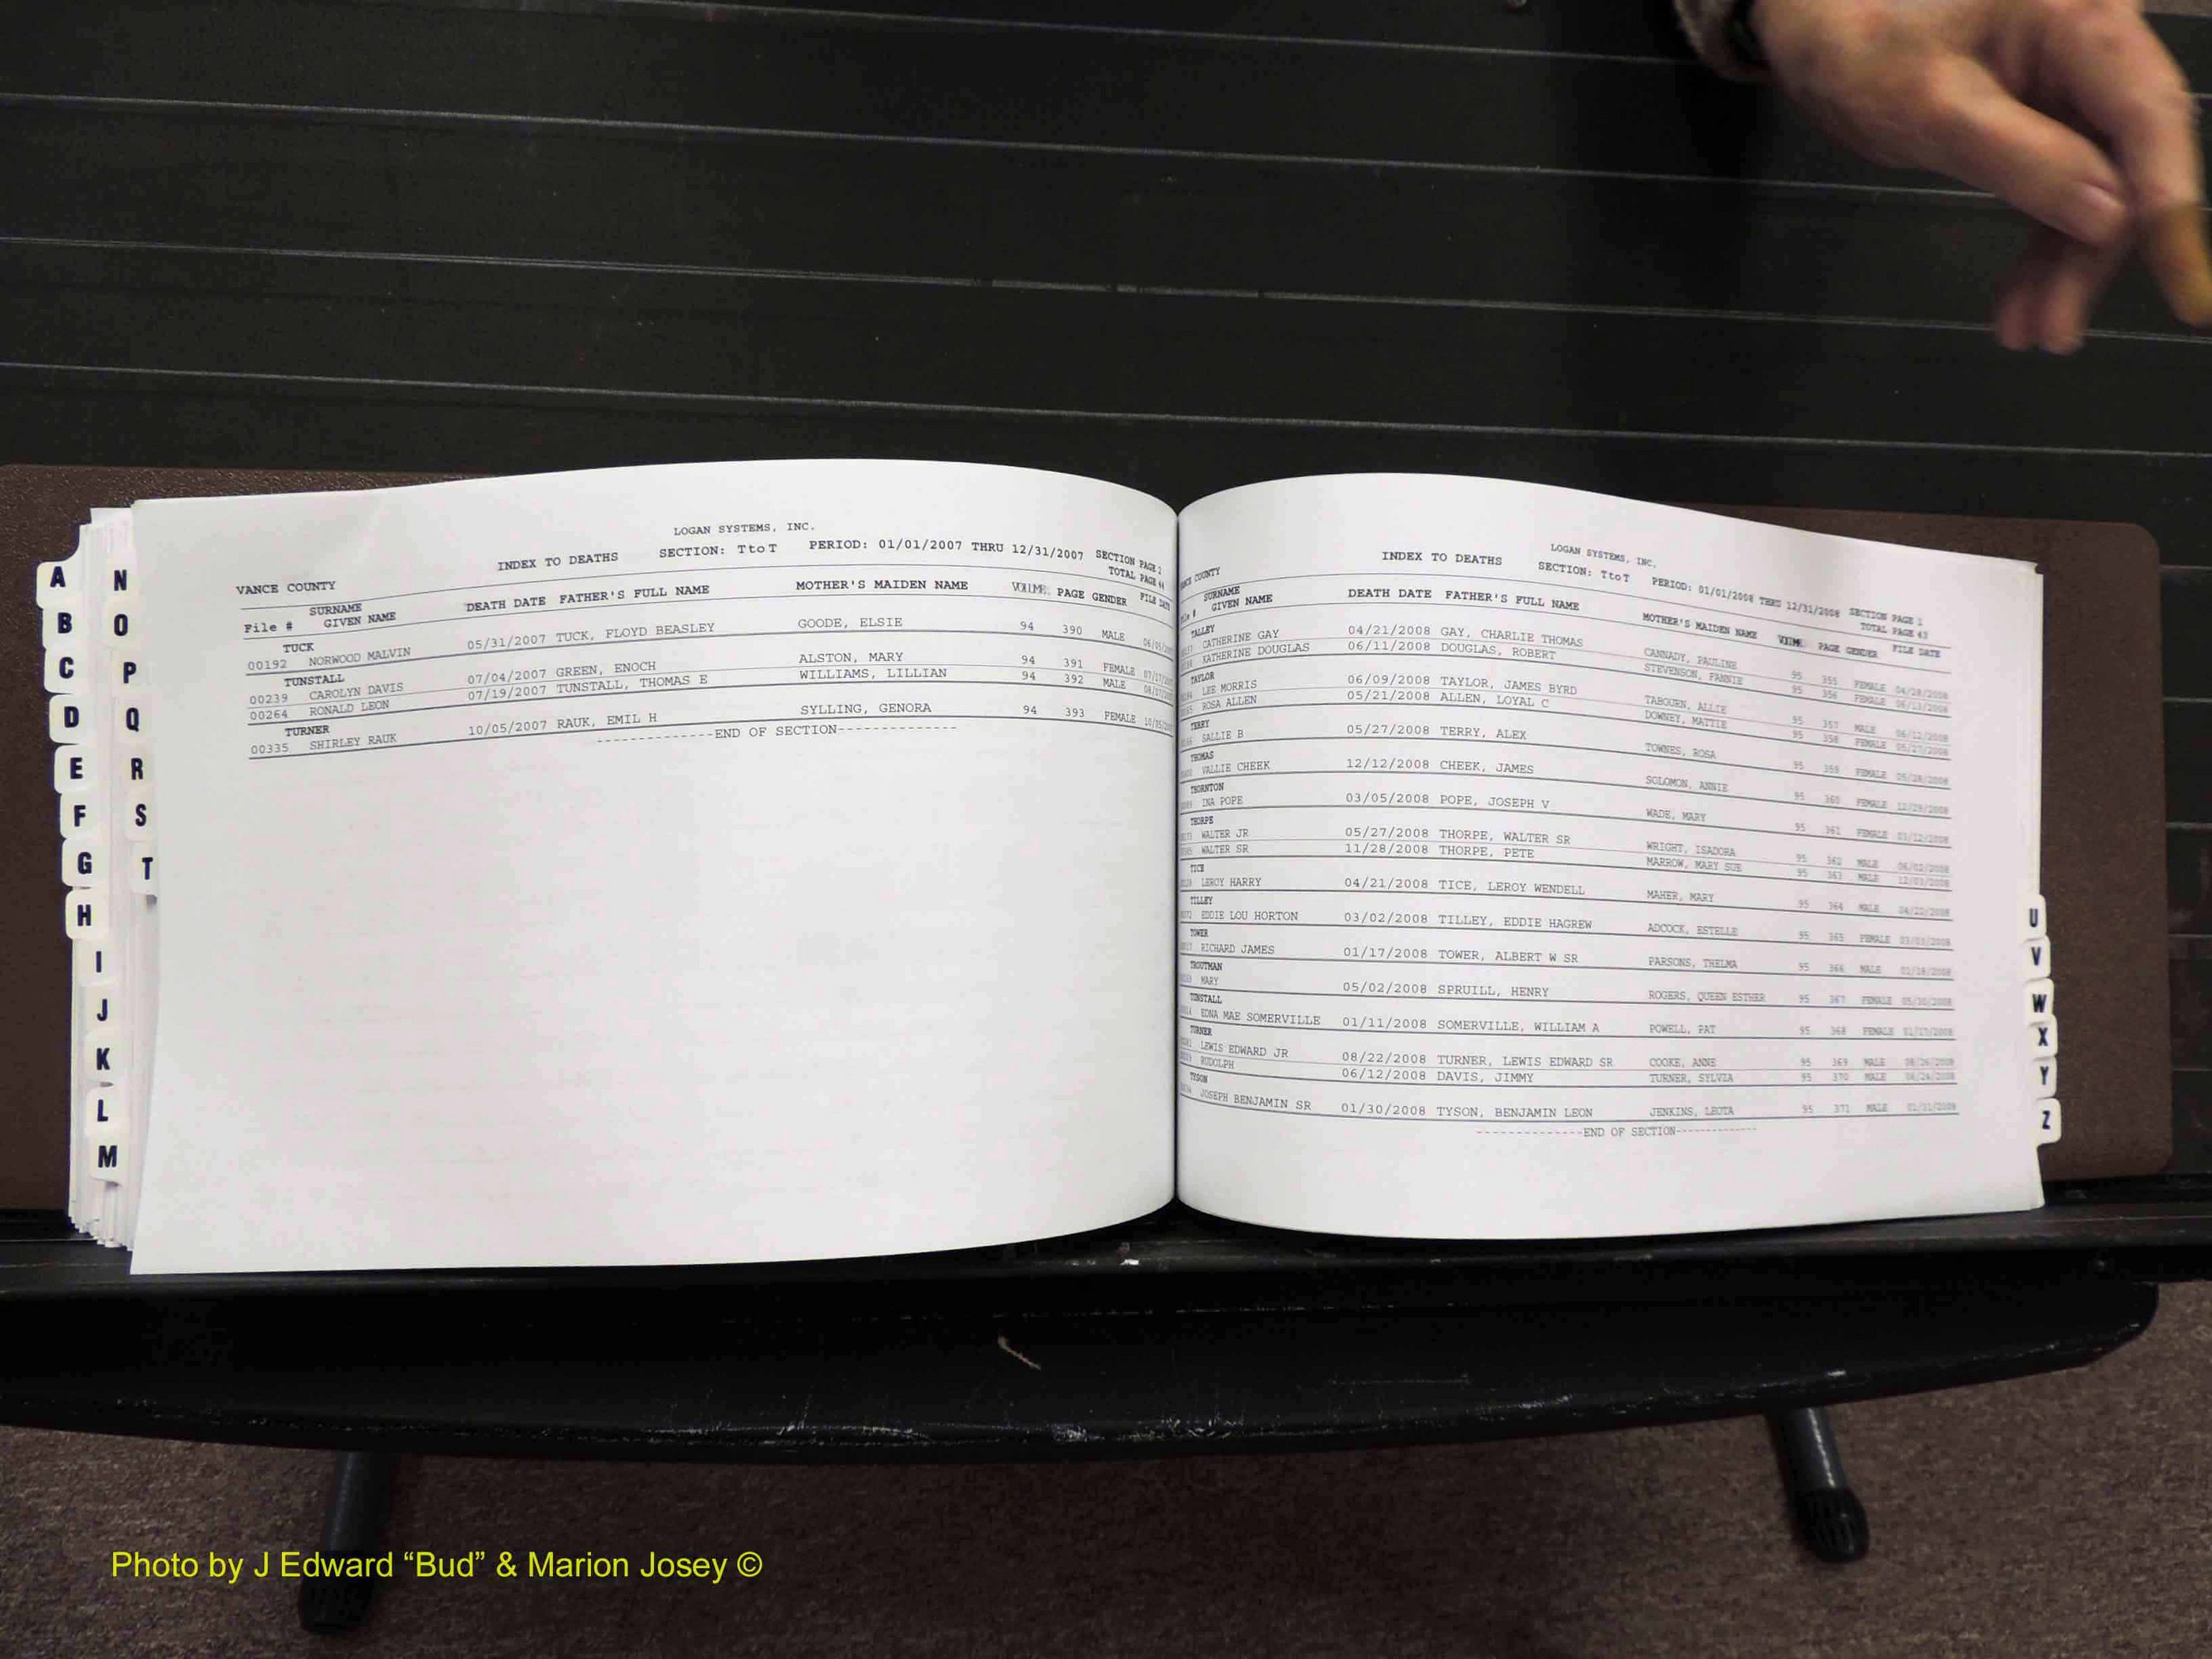 A
B
C
D
E
F
G
H
I
J
K
L
M
N
O
P
Q
R
S
T
LOGAN SYSTEMS, INC.
VANCE COUNTY INDEX TO DEATHS SECTION: T to T PERIOD: 01/01/2007 THRU 12/31/2007 SECTION PAGE 2
TOTAL PAGE
SURNAME
File # GIVEN NAME DEATH DATE FATHER'S FULL NAME MOTHER'S MAIDEN NAME VOLUME PAGE GENDER FILE DATE
TUCK
00192 NORWOOD MALVIN 05/31/2007 TUCK, FLOYD BEASLEY GOODE, ELSIE 94 390 MALE
TUNSTALL
00239 CAROLYN DAVIS 07/04/2007 GREEN, ENOCH ALSTON, MARY 94 391 FEMALE
00264 RONALD LEON 07/19/2007 TUNSTALL, THOMAS E WILLIAMS, LILLIAN 94 392 MALE
TURNER
00335 SHIRLEY RAUK 10/05/2007 RAUK, EMIL H SYLLING, GENORA 94 393 FEMALE
-------------END OF SECTION-------------
LOGAN SYSTEMS, INC.
COUNTY INDEX TO DEATHS SECTION: T to T PERIOD: 01/01/2008 THRU 12/31/2008 SECTION PAGE 1
TOTAL PAGE 43
SURNAME
GIVEN NAME DEATH DATE FATHER'S FULL NAME MOTHER'S MAIDEN NAME VOLUME PAGE GENDER FILE DATE
TALLEY
CATHERINE GAY 04/21/2008 GAY, CHARLIE THOMAS CANNADY, PAULINE 95 355 FEMALE 04/28/2008
KATHERINE DOUGLAS 06/11/2008 DOUGLAS, ROBERT STEVENSON, FANNIE 95 356 FEMALE 06/13/2008
TAYLOR
LEE MORRIS 06/09/2008 TAYLOR, JAMES BYRD TABOURN, ALLIE 95 357 MALE 06/12/2008
ROSA ALLEN 05/21/2008 ALLEN, LOYAL C DOWNEY, MATTIE 95 358 FEMALE 05/27/2008
TERRY
SALLIE B 05/27/2008 TERRY, ALEX TOWNES, ROSA 95 359 FEMALE 05/28/2008
THOMAS
VALLIE CHEEK 12/12/2008 CHEEK, JAMES SOLOMON, ANNIE 95 360 FEMALE 12/29/2008
THORNTON
INA POPE 03/05/2008 POPE, JOSEPH V WADE, MARY 95 361 FEMALE 03/12/2008
THORPE
WALTER JR 05/27/2008 THORPE, WALTER SR WRIGHT, ISADORA 95 362 MALE 06/02/2008
WALTER SR 11/28/2008 THORPE, PETE MARROW, MARY SUE 95 363 MALE 12/03/2008
TICE
LEROY HARRY 04/21/2008 TICE, LEROY WENDELL MAHER, MARY 95 364 MALE 04/22/2008
TILLEY
EDDIE LOU HORTON 03/02/2008 TILLEY, EDDIE HAGREW ADCOCK, ESTELLE 95 365 FEMALE 03/03/2008
TOWER
RICHARD JAMES 01/17/2008 TOWER, ALBERT W SR PARSONS, THELMA 95 366 MALE 01/18/2008
TROUTMAN
MARY 05/02/2008 SPRUILL, HENRY ROGERS, QUEEN ESTHER 95 367 FEMALE 05/30/2008
TUNSTALL
EDNA MAE SOMERVILLE 01/11/2008 SOMERVILLE, WILLIAM A POWELL, PAT 95 368 FEMALE 01/17/2008
TURNER
LEWIS EDWARD JR 08/22/2008 TURNER, LEWIS EDWARD SR COOKE, ANNE 95 369 MALE 08/26/2008
RUDOLPH 06/12/2008 DAVIS, JIMMY TURNER, SYLVIA 95 370 MALE 06/24/2008
TYSON
JOSEPH BENJAMIN SR 01/30/2008 TYSON, BENJAMIN LEON JENKINS, LEOTA 95 371 MALE 01/31/2008
-------------END OF SECTION-------------
U
V
W
X
Y
Z
Photo by J Edward “Bud” & Marion Josey ©